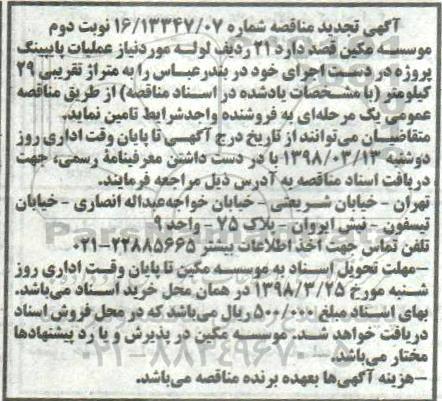 آگهی تجدید مناقصه شماره ۱۶/۱۳۳۴۷/۰۷ نوبت دوم
موسسه مکین قصد دارد ۲۱ ردیف لوله موردنیاز عملیات پایپینگ
پروژه در دست اجرای خود در بندرعباس را به متراژ تقریبی ۲۹
کیلومتر (با مشخصات یادشده در اسناد مناقصه) از طریق مناقصه
عمومی یک مرحله‌ای به فروشنده واجدشرایط تامین نماید.
متقاضیان می‌توانند از تاریخ درج آگهی تا پایان وقت اداری روز
دوشنبه ۱۳۹۸/۰۳/۱۳ با در دست داشتن معرفینامهٔ رسمی، جهت
دریافت اسناد مناقصه به آدرس ذیل مراجعه فرمایند.
تهران - خیابان شریعتی - خیابان خواجه‌عبداله انصاری - خیابان
تیسفون - نبش ایروان - پلاک ۷۵ - واحد ۹
تلفن تماس جهت اخذ اطلاعات بیشتر ۲۲۸۸۵۶۶۵-۰۲۱
-مهلت تحویل اسناد به موسسه مکین تا پایان وقت اداری روز
شنبه مورخ ۱۳۹۸/۳/۲۵ در همان محل خرید اسناد می‌باشد.
بهای اسناد مبلغ ۵۰۰/۰۰۰ ریال می‌باشد که در محل فروش اسناد
دریافت خواهد شد. موسسه مکین در پذیرش و یا رد پیشنهادها
مختار می‌باشد.
۰۲۱-۸۸۳۴۹۶۷۰
-هزینه آگهی‌ها بعهده برنده مناقصه می‌باشد.